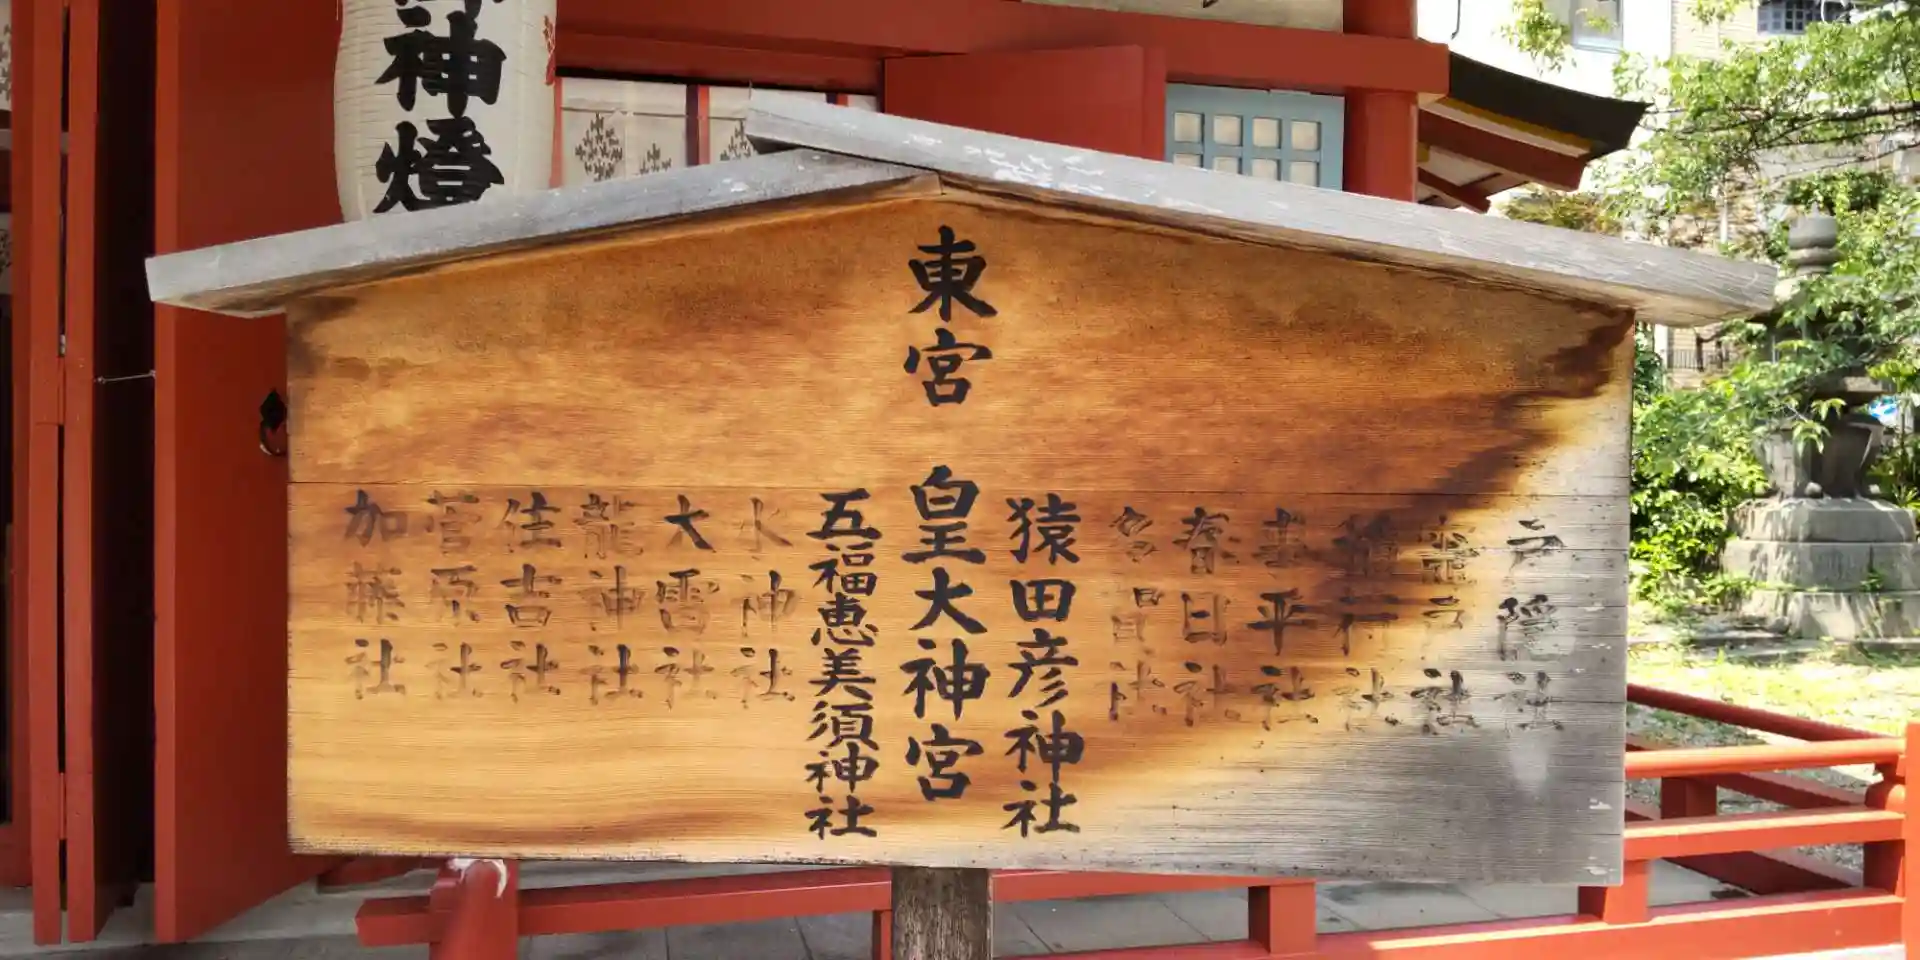 東宮
戸隠社
社
社
平社
春日社
多賀社
猿田彦神社
皇大神宮
五福恵美須神社
水神社
大雷社
龍神社
住吉社
菅原社
加藤社
神燈